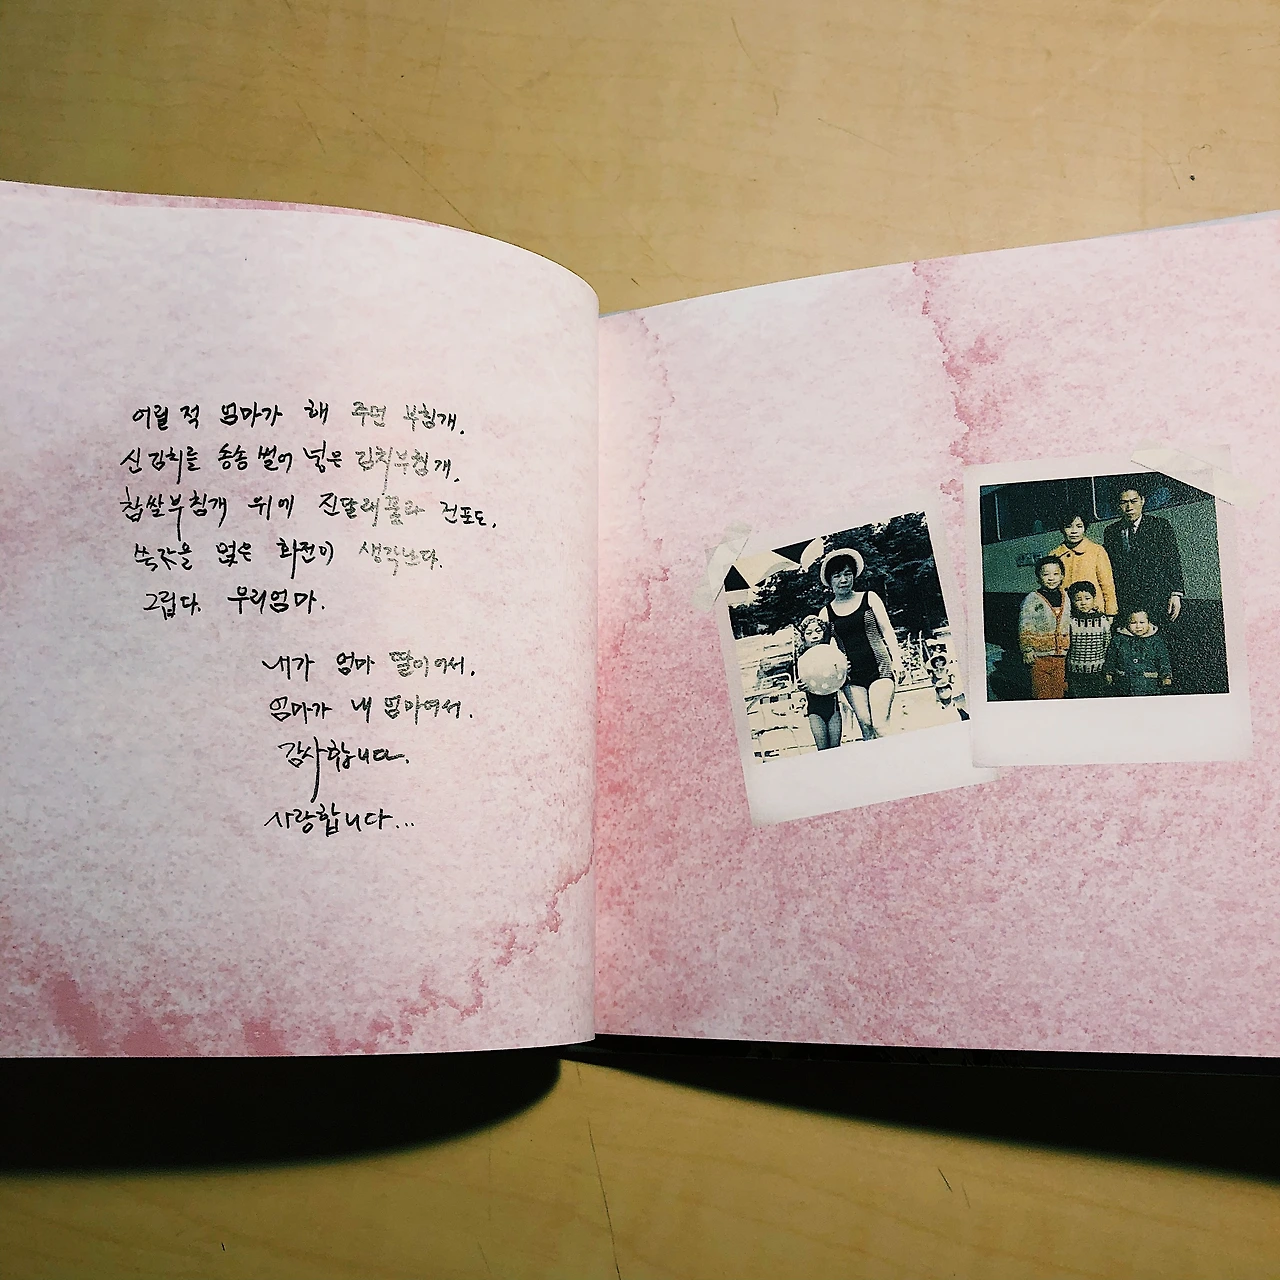 어릴 적 엄마가 해 주면 부침개.
신김치를 송송 썰어 넣은 김치부침개,
찹쌀부침개 위에 진달래꽃과 전포도,
쑥갓을 얹은 화전이 생각난다.
그립다. 우리엄마.
내가 엄마 딸이어서.
엄마가 내 엄마여서.
감사합니다.
사랑합니다...